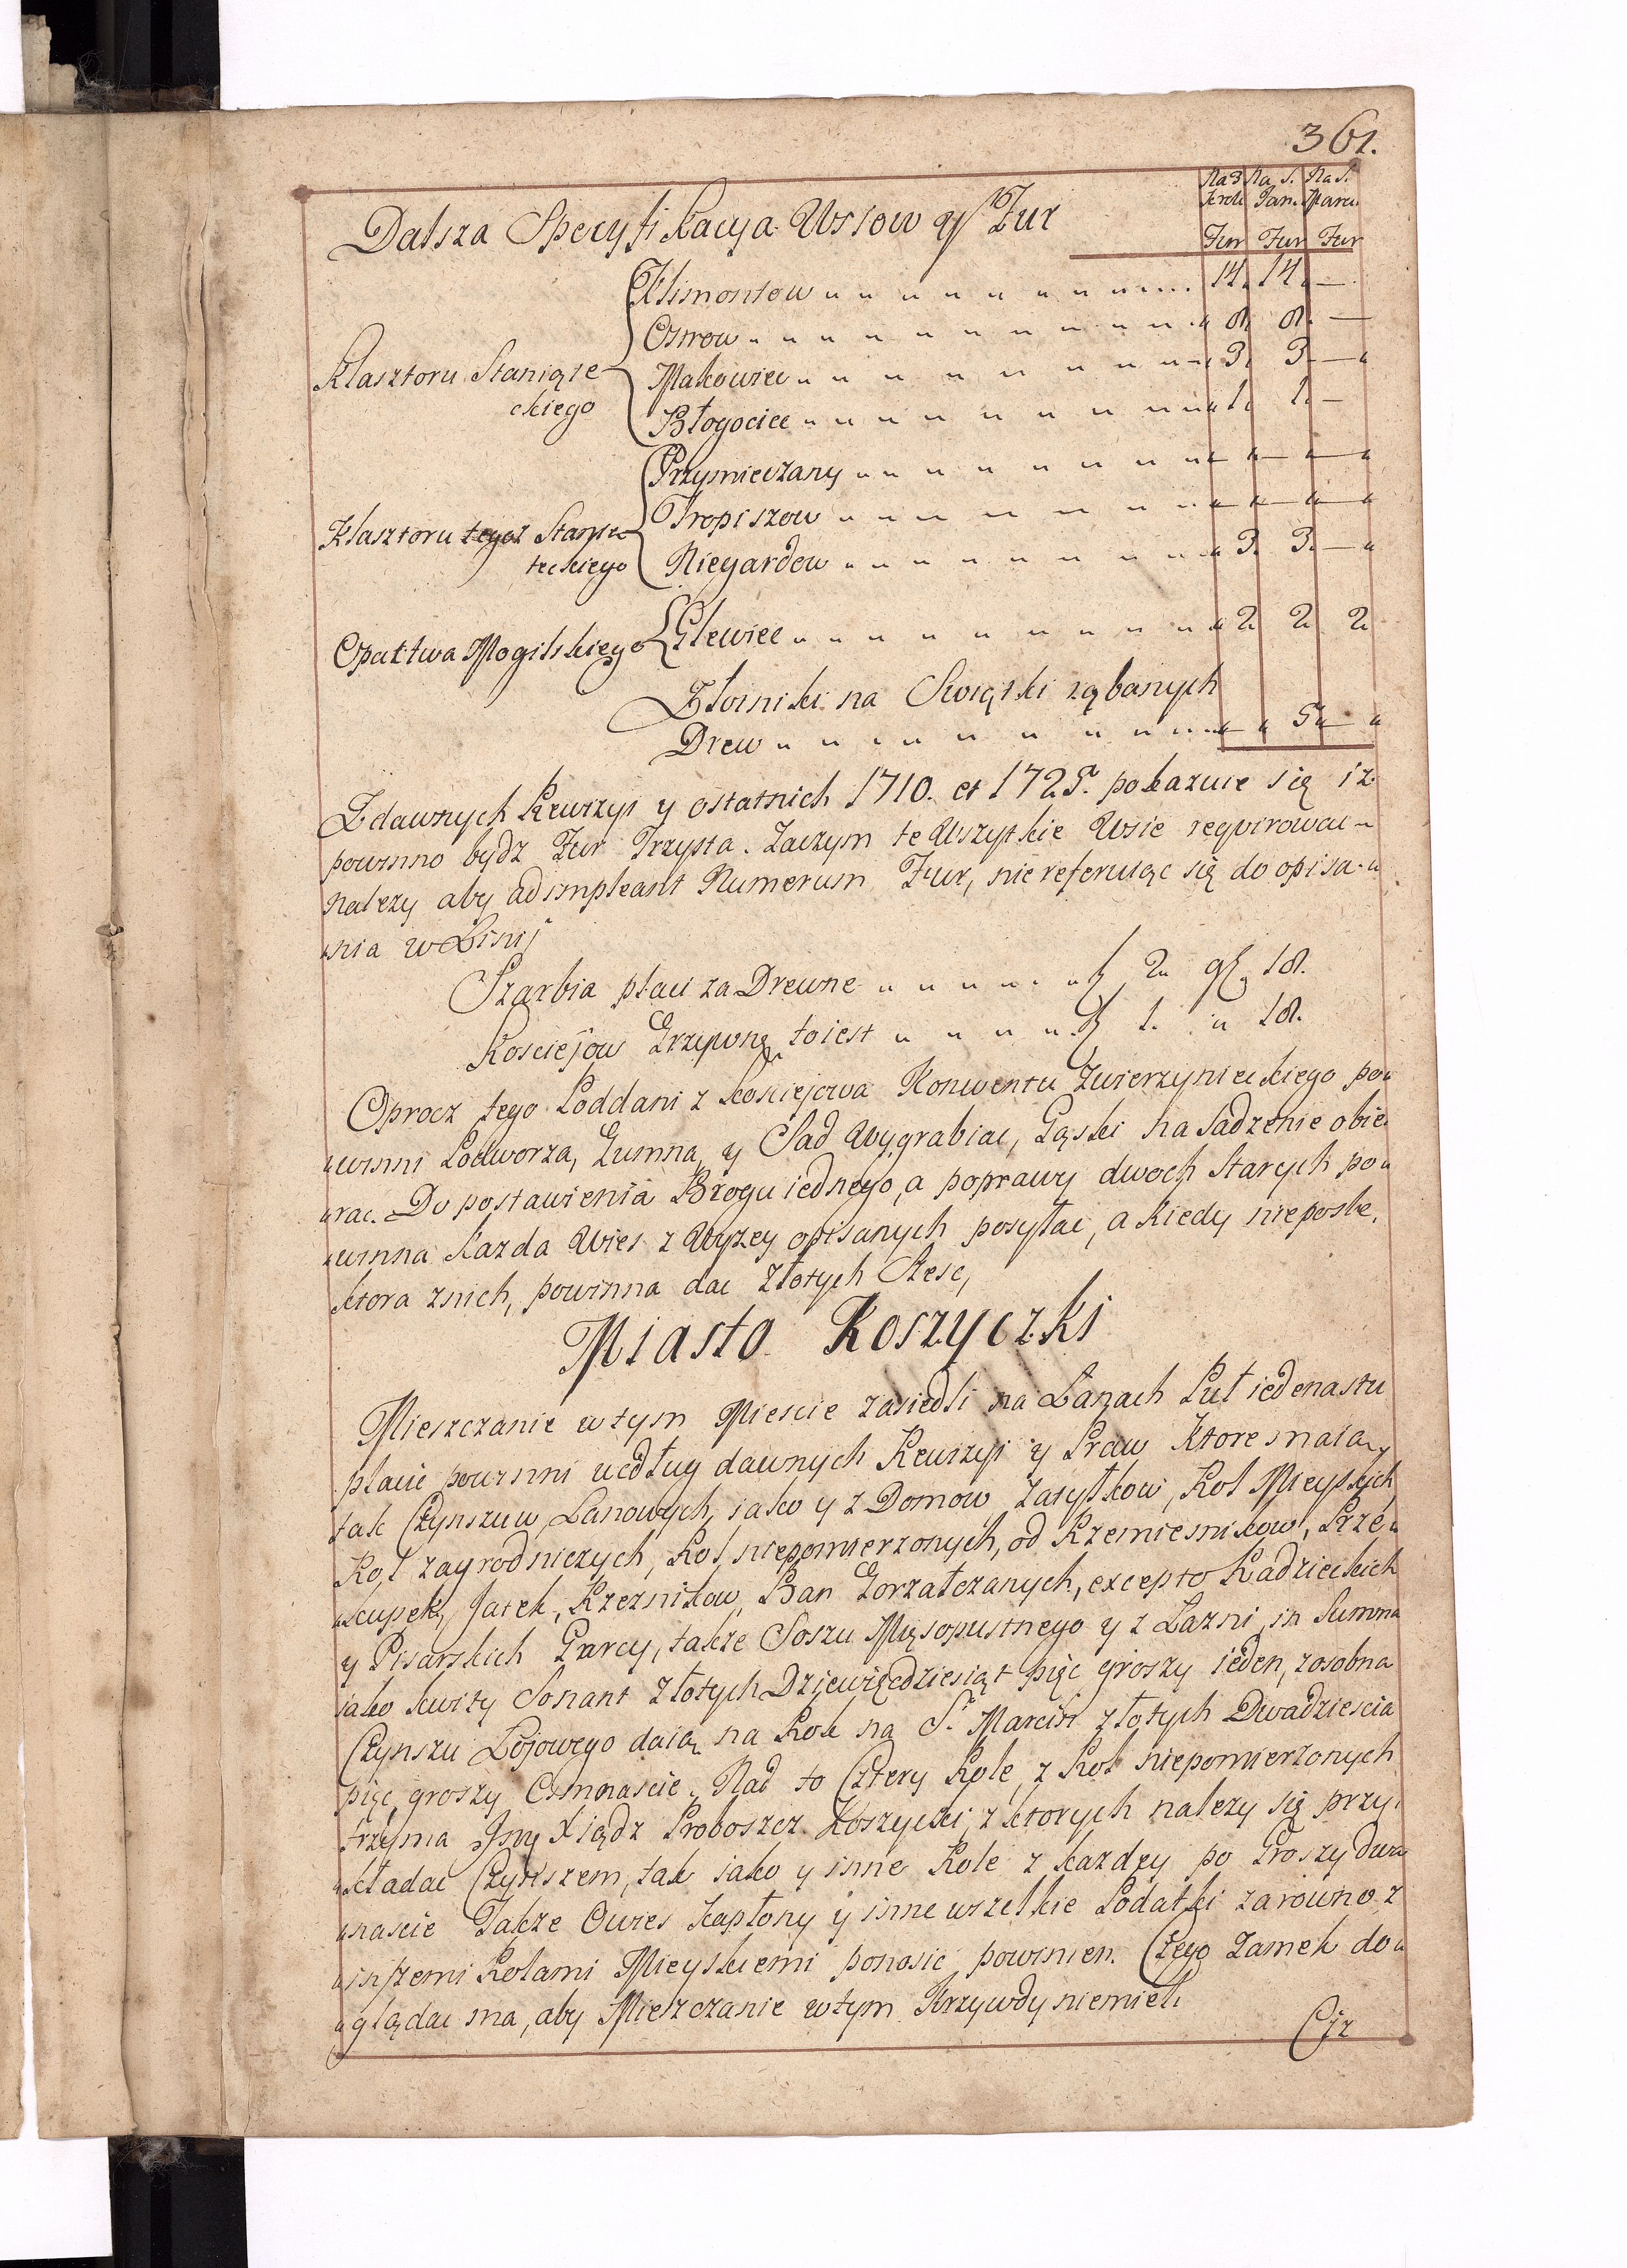 361.
Na 3 Na S. Na S.
Krole Jan. Marci.
Dalsza Specyfikacya Wsiow y Fur
Fur Fur Fur
Klimontow 14. 14. —
Ostrow 8. 8. —
Klasztoru Staniąte Makowiec 3. 3. —
ckiego Błogociee 1. 1. —
Przymieczany
Klasztoru tegoż Staniąte Tropiszow
teckiego Niegardow 3. 3. —
Opactwa Mogilskiego Glewiec 2 2 2
Złotniki na Swiątki rąbanych
Drew 5
Z dawnych Rewizyi y ostatnich 1710. et 1725. pokazuie się iz
powinno bydz Fur Trzysta. Zaczym te Wszytkie Wsie reqvirowac
nalezy aby adimpleant Numerum Fur, nie referuiąc się do opisa
nia w Linij
Szarbia płaci za Drewne 2 gr. 18.
Kosciejow Grzywnę to iest 1. 18.
Oprocz tego Poddani z Kosciejowa Konwentu Zwierzynieckiego po
winni Podworza, Gumna, y Sad Wygrabiac, Gąski na Sadzenie obie
rac. Do postawienia Brogu iednego, a poprawy dwoch Starych po
winna kazda Wies z Wyzey opisanych posyłac, a kiedy nieposle,
ktora znich, powinna dac Złotych Szesc,
Miasto Koszyczki
Mieszczanie w tym Miescie zasiedli na Łanach Puł iedenastu
płacic powinni według dawnych Rewizyi y Praw Ktore maią,
tak Czynszuw Łanowych, iako y z Domow Zasytkow, Rol Mieyskich,
Rol zagrodniczych, Rol niepomierzonych, od Rzemiesnikow, Prze
kupek, Jatek, Rzeznikow, Ban Gorzałczanych, excepto Radzieckich
y Pisarskich Garcy, takze Soszu Mięsopustnego y z Łazni, in Summa
iako kwity Sonant Złotych Dziewięcdziesiąt pięc groszy ieden, zosobna
Czynszu Łojowego daią na Rok na S. Marcin złotych Dwadziescia
pięc, groszy Osmnascie. Nad to Cztery Role z Rol niepomierzonych
trzyma Jmę Xiądz Proboszcz Koszycki, z ktorych nalezy się przy
kładac Czynszem, tak iako y inne Role z kazdey po Groszy dwu
nascie Takze Owies Kapłony y inne wszelkie Podatki zarowno z
inszemi Rolami Mieyskiemi ponosic powinien. Czego Zamek do
glądac ma, aby Mieszczanie w tym Krzywdy niemieli
Ciz